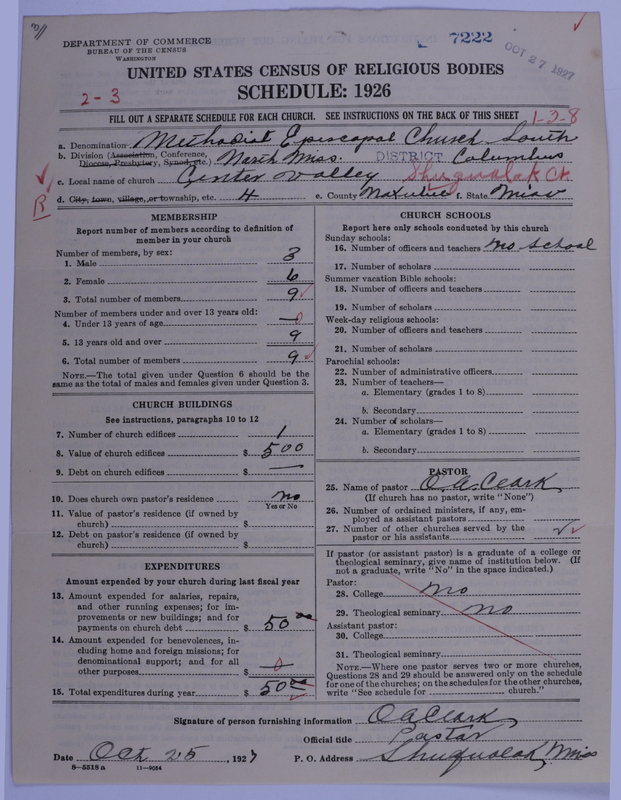 7222
OCT 27 1927
DEPARTMENT OF COMMERCE
BUREAU OF THE CENSUS
WASHINGTON
UNITED STATES CENSUS OF RELIGIOUS BODIES
2-3
SCHEDULE: 1926
FILL OUT A SEPARATE SCHEDULE FOR EACH CHURCH. SEE INSTRUCTIONS ON THE BACK OF THIS SHEET
1-2-8
a. Denomination Methodist Episcopal Church South
b. Division (Association, Conference, Diocese, Presbytery, Synod, etc.) North Miss. DISTRICT Columbus
c. Local name of church Center Valley Shuqualak Ct.
R
d. City, town, village, or township, etc. 4 e. County Noxubee f. State Miss
MEMBERSHIP
Report number of members according to definition of
member in your church
Number of members, by sex:
1. Male 3
2. Female 6
3. Total number of members 9
Number of members under and over 13 years old:
4. Under 13 years of age 0
5. 13 years old and over 9
6. Total number of members 9
NOTE.—The total given under Question 6 should be
same as the total of males and females given under Question 3.
CHURCH BUILDINGS
See instructions, paragraphs 10 to 12
7. Number of church edifices 1
8. Value of church edifices $ 500
9. Debt on church edifices $ —
10. Does church own pastor's residence no
Yes or No
11. Value of pastor's residence (if owned by
church) $
12. Debt on pastor's residence (if owned by
church) $
EXPENDITURES
Amount expended by your church during last fiscal year
13. Amount expended for salaries, repairs,
and other running expenses; for im-
provements or new buildings; and for
payments on church debt $ 50 00
14. Amount expended for benevolences, in-
cluding home and foreign missions; for
denominational support; and for all
other purposes $ 0
15. Total expenditures during year $ 50 00
CHURCH SCHOOLS
Report here only schools conducted by this church
Sunday schools:
16. Number of officers and teachers no school
17. Number of scholars
Summer vacation Bible schools:
18. Number of officers and teachers
19. Number of scholars
Week-day religious schools:
20. Number of officers and teachers
21. Number of scholars
Parochial schools:
22. Number of administrative officers
23. Number of teachers—
a. Elementary (grades 1 to 8)
b. Secondary
24. Number of scholars—
a. Elementary (grades 1 to 8)
b. Secondary
PASTOR
25. Name of pastor O. A. Clark
(If church has no pastor, write "None")
26. Number of ordained ministers, if any, em-
ployed as assistant pastors
27. Number of other churches served by the
pastor or his assistants
If pastor (or assistant pastor) is a graduate of a college or
theological seminary, give name of institution below. (If
not a graduate, write "No" in the space indicated.)
Pastor:
28. College no
29. Theological seminary no
Assistant pastor:
30. College
31. Theological seminary
NOTE.—Where one pastor serves two or more churches,
Questions 28 and 29 should be answered only on the schedule
for one of the churches; on the schedules for the other churches,
write "See schedule for church."
Signature of person furnishing information O A Clark
Official title Pastor
Date Oct 25, 1927 P. O. Address Shuqualak, Miss
8—5518 a 11—9054